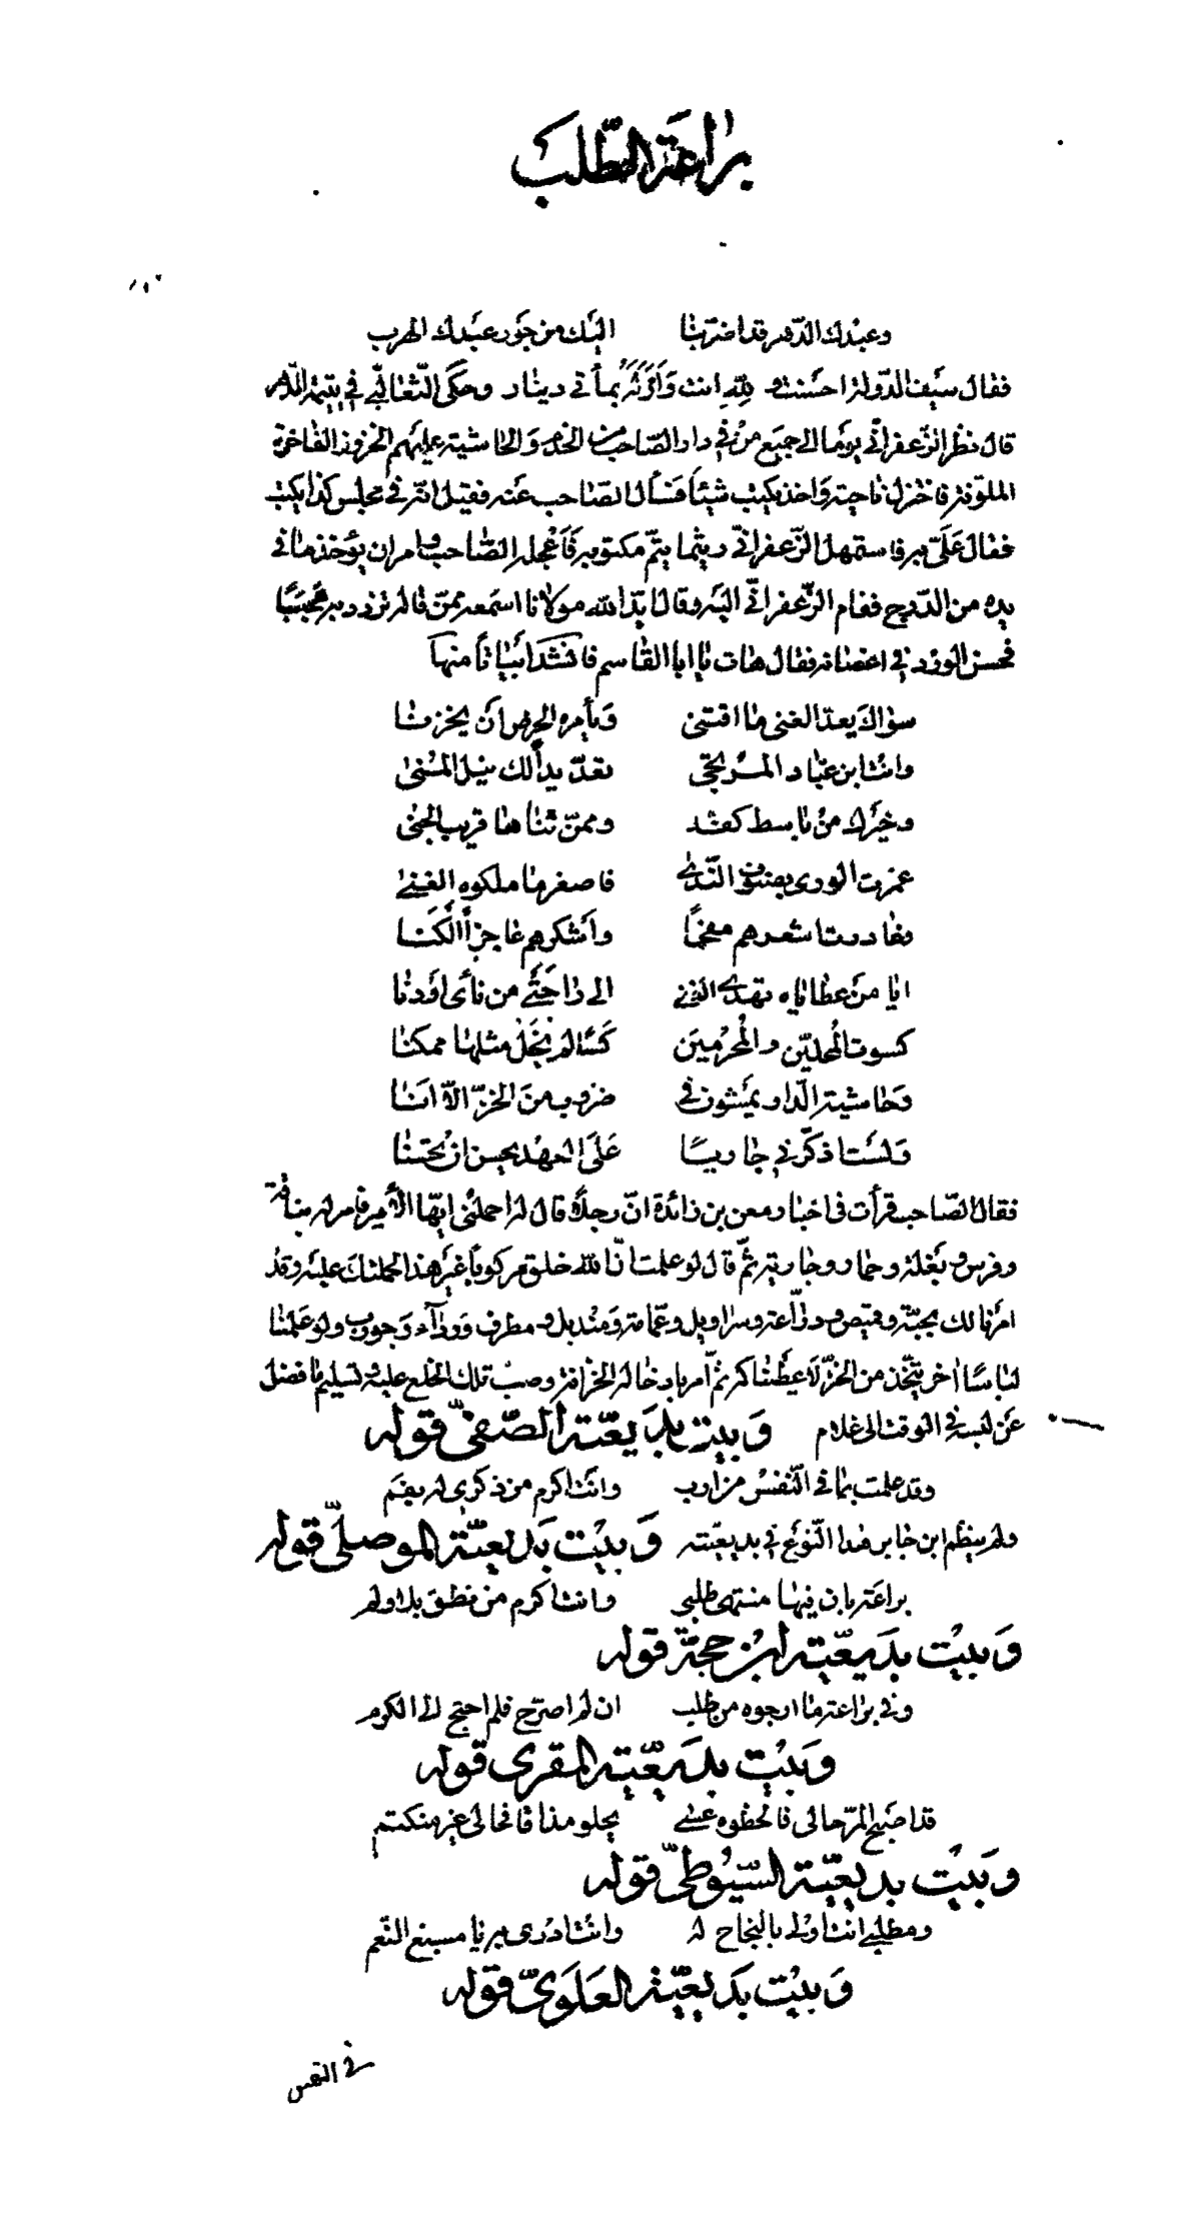 براعة الطلب
وعبدك الدهر قد اضر بنا اليك من جور عبدك الهرب
فقال سيف الدولة احسنت ولله انت وامر له بمأتى دينار وحكى الثعالبى فى يتيمة الدهر
قال نظر الزعفرانى يوما الى جميع من فى دار الصاحب من الخدم والحاشية عليهم الخزوز الفاخرة
الملونة فاعتزل ناحية واخذ يكتب شيئا فسأل الصاحب عنه فقيل انه فى مجلس كذا يكتب
فقال على به فاستمهل الزعفرانى ريثما يتم مكتوبه فاعجله الصاحب وامر ان يؤخذ ما فى
يده من الدرج فقام الزعفرانى اليه وقال ايد الله مولانا اسمعه ممن قاله تزدد به عجبا
فحسن الورد فى اغصانه فقال هات يا ابا القاسم فانشد ابياتا منها
سواك يعد الغنى ما اقتنى ويأمره الحرص ان يخزنا
وانت ابن عباد المرتجى تعد يدا لك نيل المنى
وخيرك من باسط كفه وممن ثناها قريب الجنى
غمرت الورى بصنوف الندى فاصغر ما ملكوه الغنى
وغادرت اشعرهم مفحما واشكرهم عاجزا الكنا
ايا من عطاياه تهدى الغنى الى راحتى من نأى او دنا
كسوت المحلين والمحرمين كسا لم يخل مثلها ممكنا
وحاشية الدار يمشون فى ضروب من الخز الا انا
ولست اذكر فى جاريا على العهد يحسن ان يحسنا
فقال الصاحب قرأت فى اخبار معن بن زائدة ان رجلا قال له احملنى ايها الامير فامر له بناقة
وفرس وبغلة وحمار وجارية ثم قال لو علمت ان الله خلق مركوبا غير هذا لحملتك عليه وقد
امرنا لك بجبة وقميص ودراعة وسراويل وعمامة ومنديل ومطرف ورداء وجورب ولو علمنا
لباسا اخر يتخذ من الخز لاعطيناكه ثم امر بادخاله الخزانة وصب تلك الخلع عليه وتسليم ما فضل
عن لبسه فى الوقت الى غلامه وبيت بديعية الصفى قوله
وقد علمت بما فى النفس من ارب وانت اكرم من ذكرى له بفم
ولم ينظم ابن جابر هذا النوع فى بديعيته وبيت بديعية الموصلى قوله
براعة بان فيها منتهى طلبى وانت اكرم من نطق بلا ولم
وبيت بديعية ابن حجة قوله
وفى براعة ما ارجوه من طلب ان لم اصرح فلم احتج الى الكرم
وبيت بديعية المقرى قوله
قد اصبح المر حالى فالحظوه عسى يحلو مذاقا فحالى غير منكتم
وبيت بديعية السيوطى قوله
ومطلبى انت اولى بالنجاح له وانت ادرى به يا مسبغ النعم
وبيت بديعية العلوى قوله
فى النفس